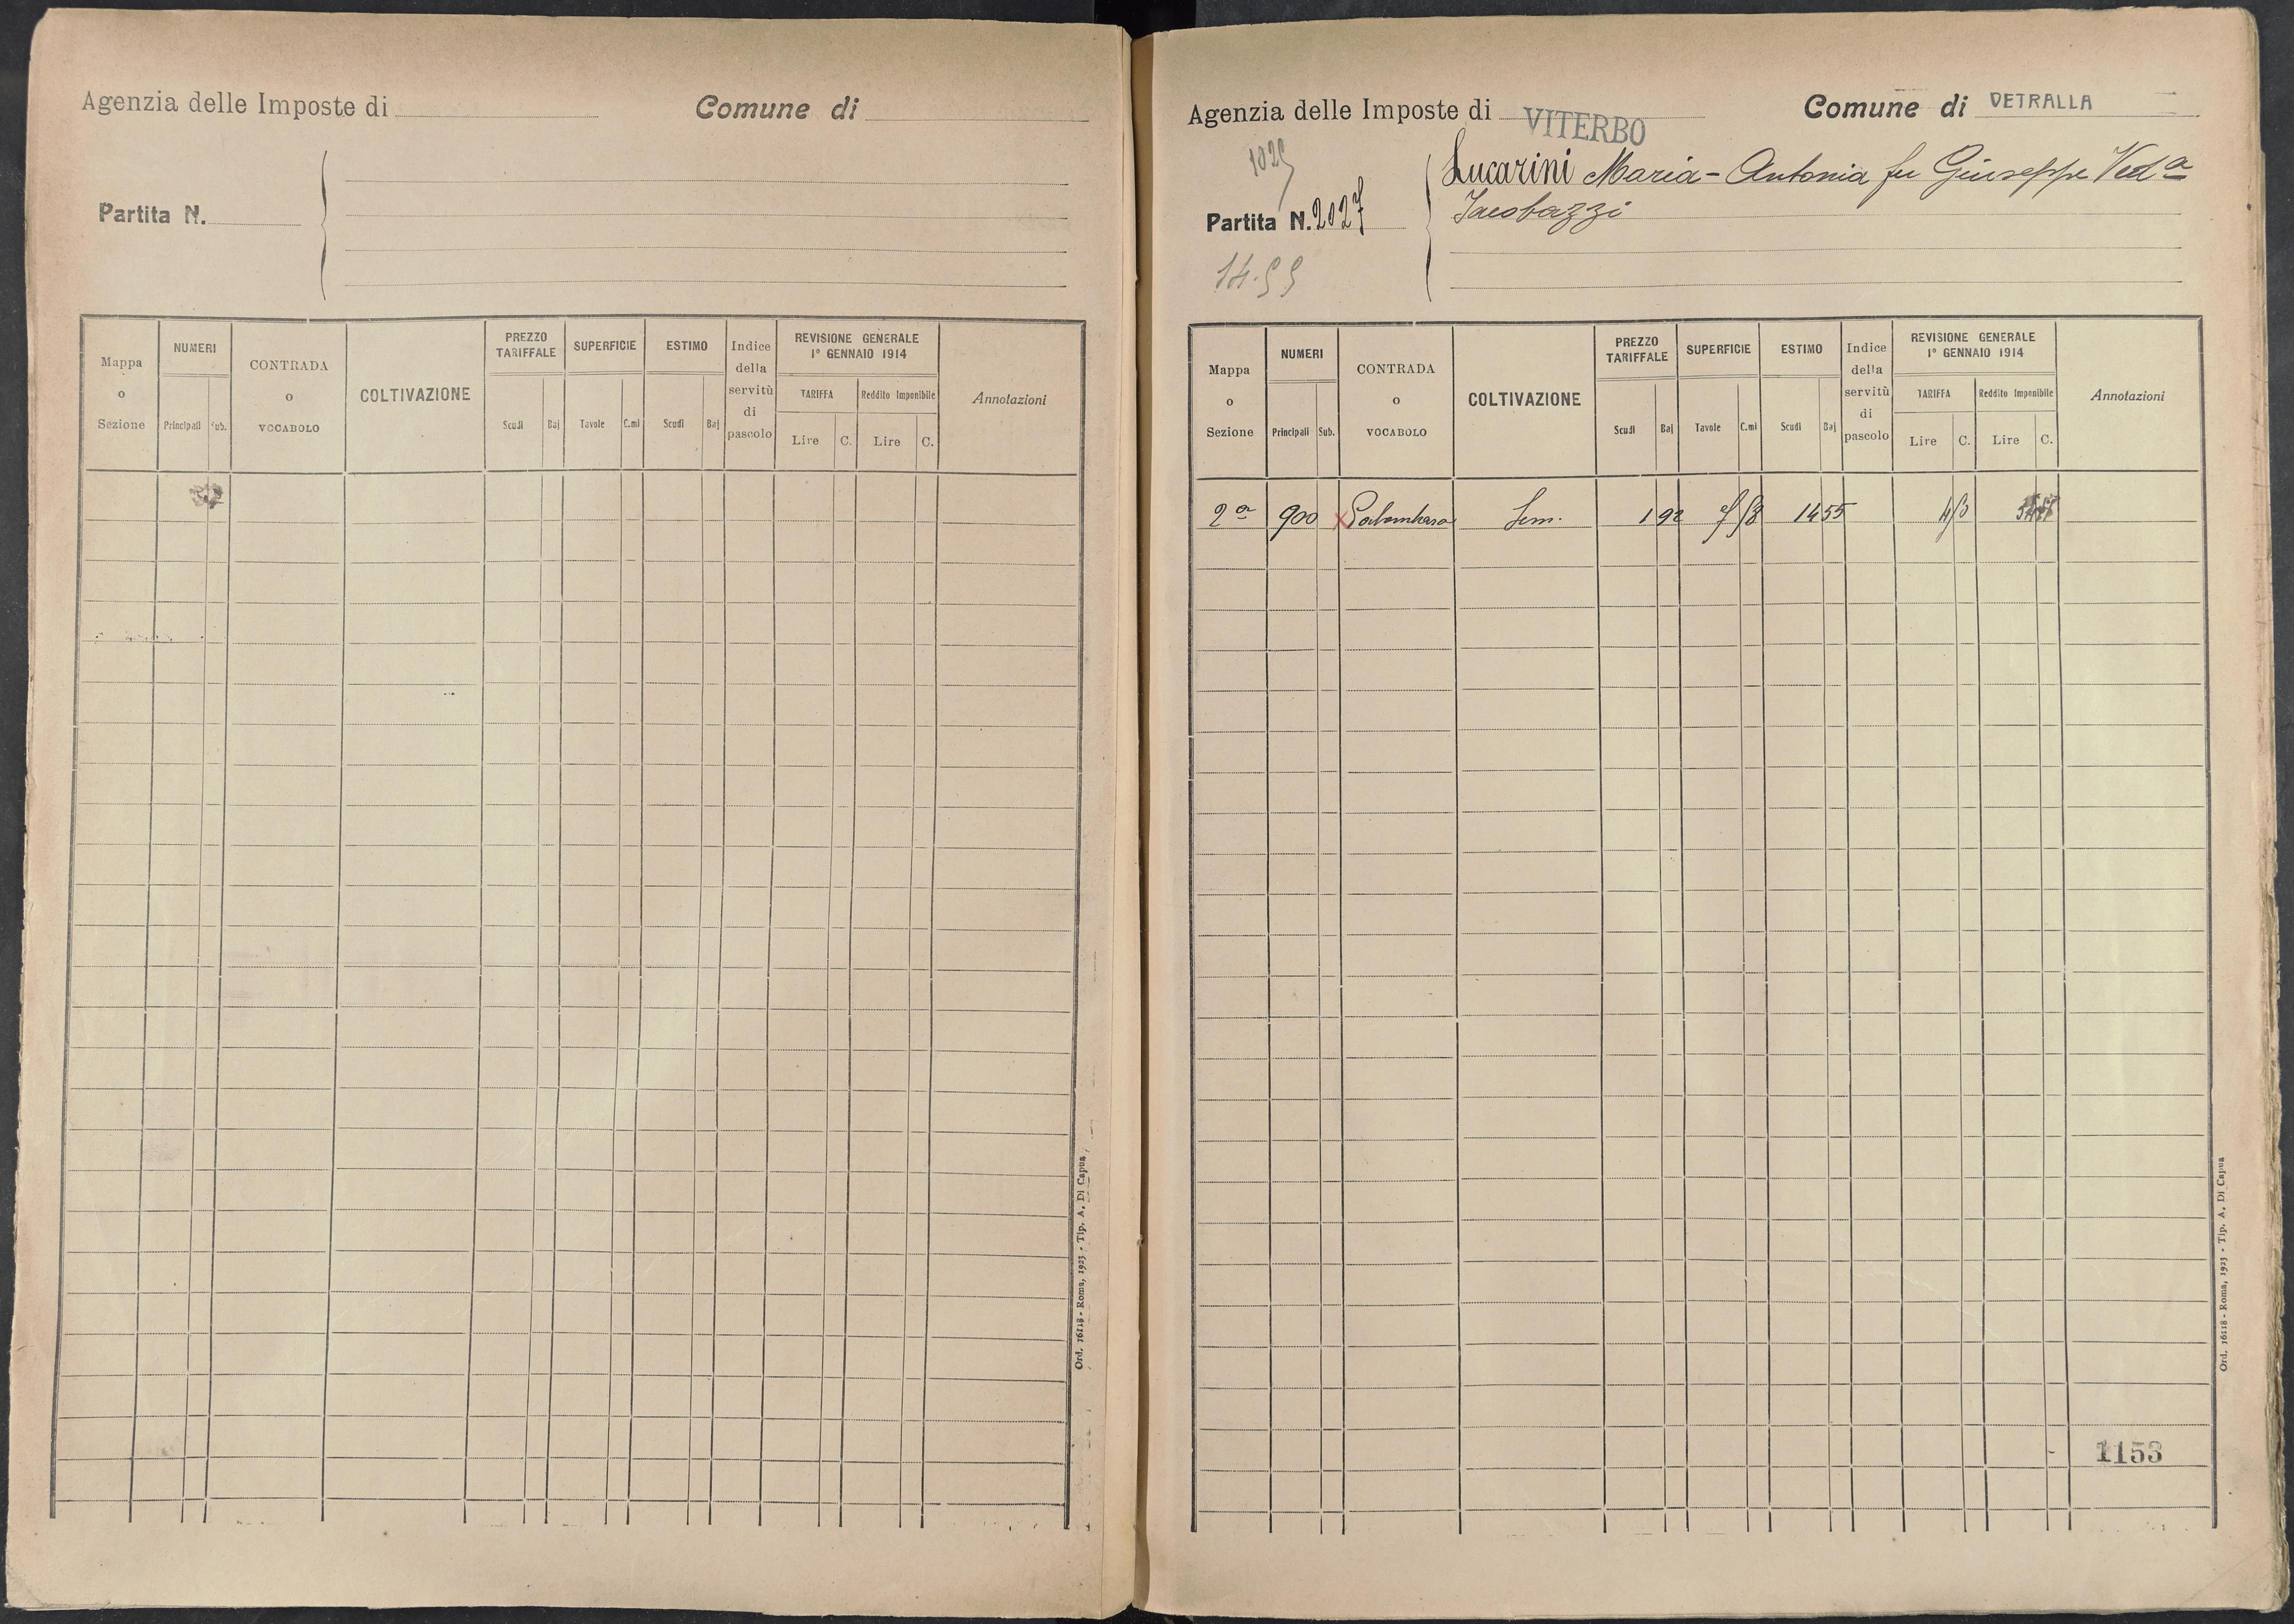 Agenzia delle Imposte di
Comune di
Partita N.
Mappa o Sezione
NUMERI
Principali
Sub.
CONTRADA o VOCABOLO
COLTIVAZIONE
PREZZO TARIFFALE
Scudi
Baj
SUPERFICIE
Tavole
C.mi
ESTIMO
Scudi
Baj
Indice della servitù di pascolo
REVISIONE GENERALE
1° GENNAIO 1914
TARIFFA
Reddito Imponibile
Lire
C.
Lire
C.
Annotazioni
Ord. 16118 - Roma, 1923 - Tip. A. Di Capua
Agenzia delle Imposte di VITERBO
Comune di VETRALLA
Partita N. 2027
Lucarini Maria-Antonia fu Giuseppe Ved a
Jacobazzi
14.55
Mappa o Sezione
NUMERI
Principali
Sub.
CONTRADA o VOCABOLO
COLTIVAZIONE
PREZZO TARIFFALE
Scudi
Baj
SUPERFICIE
Tavole
C.mi
ESTIMO
Scudi
Baj
Indice della servitù di pascolo
REVISIONE GENERALE
1° GENNAIO 1914
TARIFFA
Reddito Imponibile
Lire
C.
Lire
C.
Annotazioni
2a 900 x Palombara Sem. 1 92 7 58 14 55
1153
Ord. 16118 - Roma, 1923 - Tip. A. Di Capua